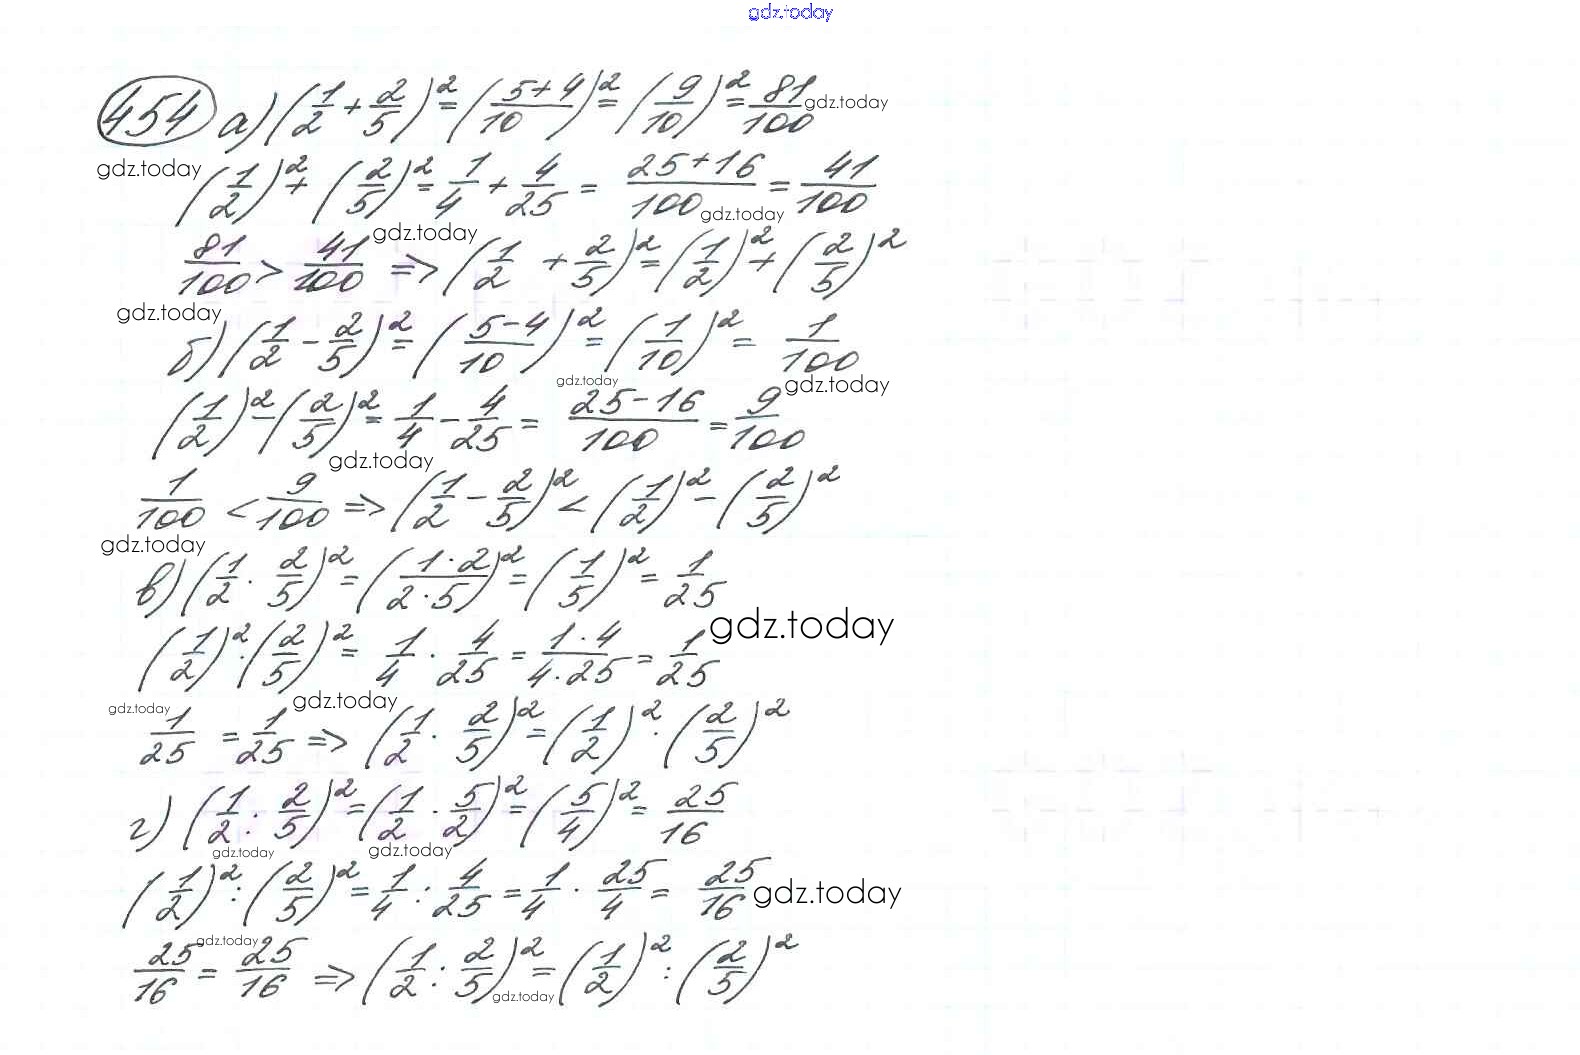 gdz.today
454 а) (1/2 + 2/5)² = ((5+4)/10)² = (9/10)² = 81/100 gdz.today
gdz.today (1/2)² + (2/5)² = 1/4 + 4/25 = (25+16)/100 = 41/100 gdz.today
81/100 > 41/100 gdz.today => (1/2 + 2/5)² = (1/2)² + (2/5)²
gdz.today
б) (1/2 - 2/5)² = ((5-4)/10)² = (1/10)² = 1/100
gdz.today gdz.today
(1/2)² - (2/5)² = 1/4 - 4/25 = (25-16)/100 = 9/100
gdz.today
1/100 < 9/100 => (1/2 - 2/5)² < (1/2)² - (2/5)²
gdz.today
в) (1/2 · 2/5)² = ((1·2)/(2·5))² = (1/5)² = 1/25
gdz.today
(1/2)² · (2/5)² = 1/4 · 4/25 = (1·4)/(4·25) = 1/25
gdz.today gdz.today
1/25 = 1/25 => (1/2 · 2/5)² = (1/2)² · (2/5)²
г) (1/2 : 2/5)² = (1/2 · 5/2)² = (5/4)² = 25/16
gdz.today gdz.today
(1/2)² : (2/5)² = 1/4 : 4/25 = 1/4 · 25/4 = 25/16 gdz.today
gdz.today
25/16 = 25/16 => (1/2 : 2/5)² = (1/2)² : (2/5)²
gdz.today